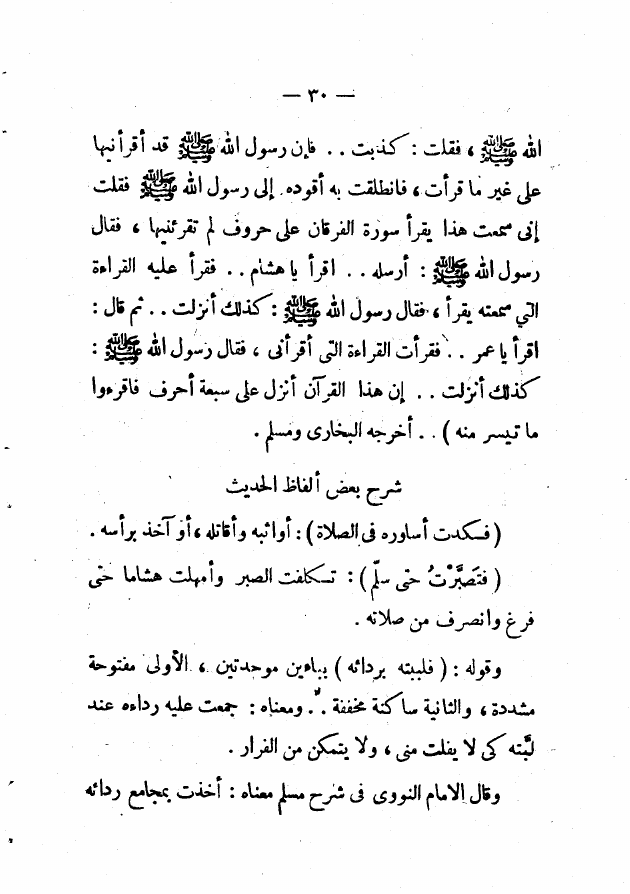 — ٣٠ —
الله ﷺ ، فقلت : كذبت . . فإن رسول الله ﷺ قد أقرأنيها
على غير ما قرأت ، فانطلقت به أقوده إلى رسول الله ﷺ فقلت
إنى سمعت هذا يقرأ سورة الفرقان على حروف لم تقرئنيها ، فقال
رسول الله ﷺ : أرسله . . اقرأ يا هشام . . فقرأ عليه القراءة
التي سمعته يقرأ ، فقال رسول الله ﷺ : كذلك أنزلت . . ثم قال :
اقرأ يا عمر . . فقرأت القراءة التى أقرأنى ، فقال رسول الله ﷺ :
كذلك أنزلت . . إن هذا القرآن أنزل على سبعة أحرف فاقرءوا
ما تيسر منه ) . . أخرجه البخارى ومسلم .
شرح بعض ألفاظ الحديث
( فسكدت أساوره فى الصلاة ) : أوائبه وأقاتله ، أو آخذ برأسه .
( فتَصَبَّرْتُ حتى سلّم ) : تسكلفت الصبر وأمهلت هشاما حتى
فرغ وانصرف من صلاته .
وقوله : ( فلببته بردائه ) بباءين موحدتين ، الأولى مفتوحة
مشددة ، والثانية ساكنة مخففة . . ومعناه : جمعت عليه رداءه عند
لبَّته كى لا يفلت منى ، ولا يتمكن من الفرار .
وقال الامام النووى فى شرح مسلم معناه : أخذت بمجامع ردائه